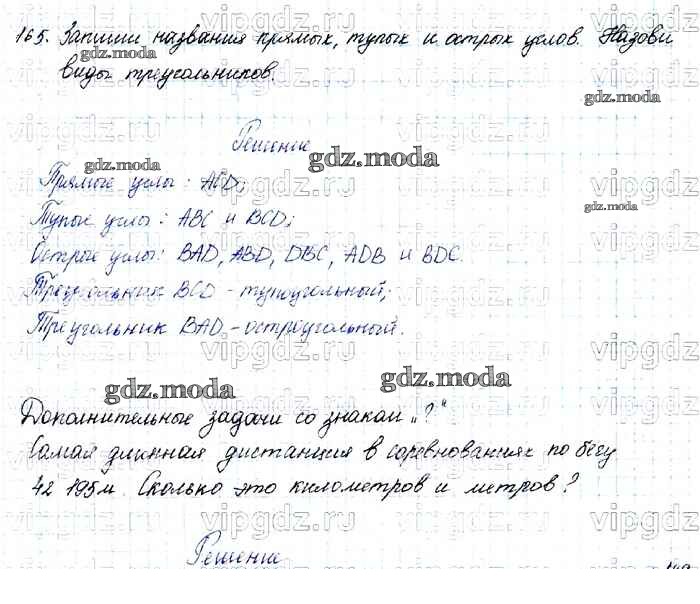 165. Запиши названия прямых, тупых и острых углов. Назови
виды треугольников.
Решение
Прямые углы: ACD;
Тупые углы: ABC и BCD;
Острые углы: BAD, ABD, DBC, ADB и BDC.
Треугольник BCD - тупоугольный;
Треугольник BAD - остроугольный.
Дополнительные задачи со знаком „?“
Самая длинная дистанция в соревнованиях по бегу
42 195м. Сколько это километров и метров?
Решение
gdz.moda
gdz.moda
gdz.moda
gdz.moda
gdz.moda
gdz.moda
vipgdz.ru